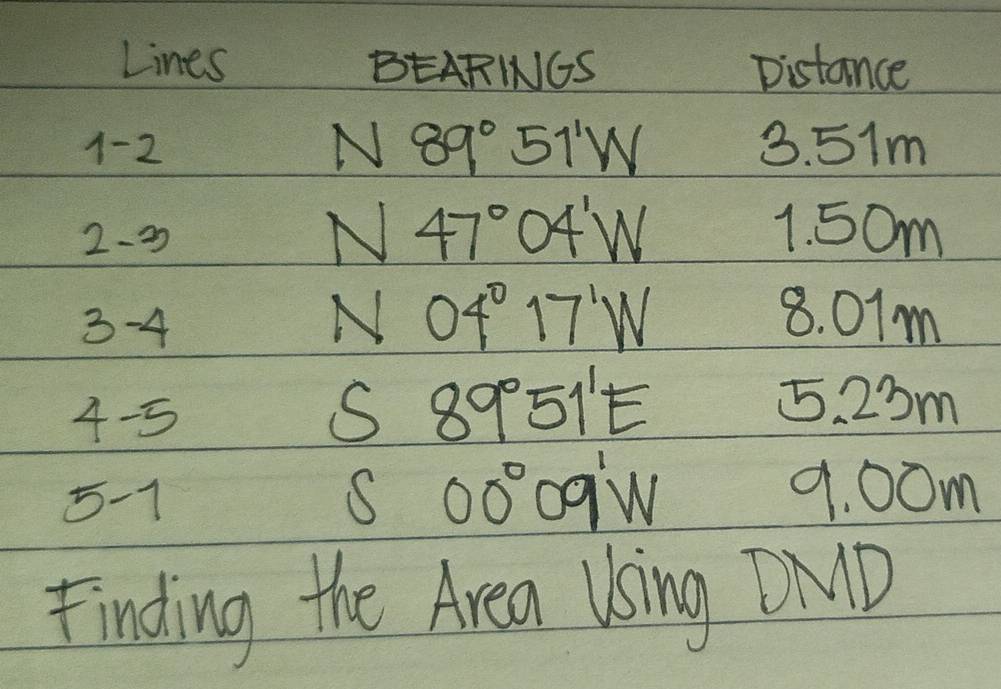 Lines BEARINGS Distance
1-2 N 89° 51'W 3.51m
2-3 N 47° 04'W 1.50m
3-4 N 04° 17'W 8.01m
4-5 S 89° 51'E 5.23m
5-1 S 00° 09'W 9.00m
Finding the Area Using DMD